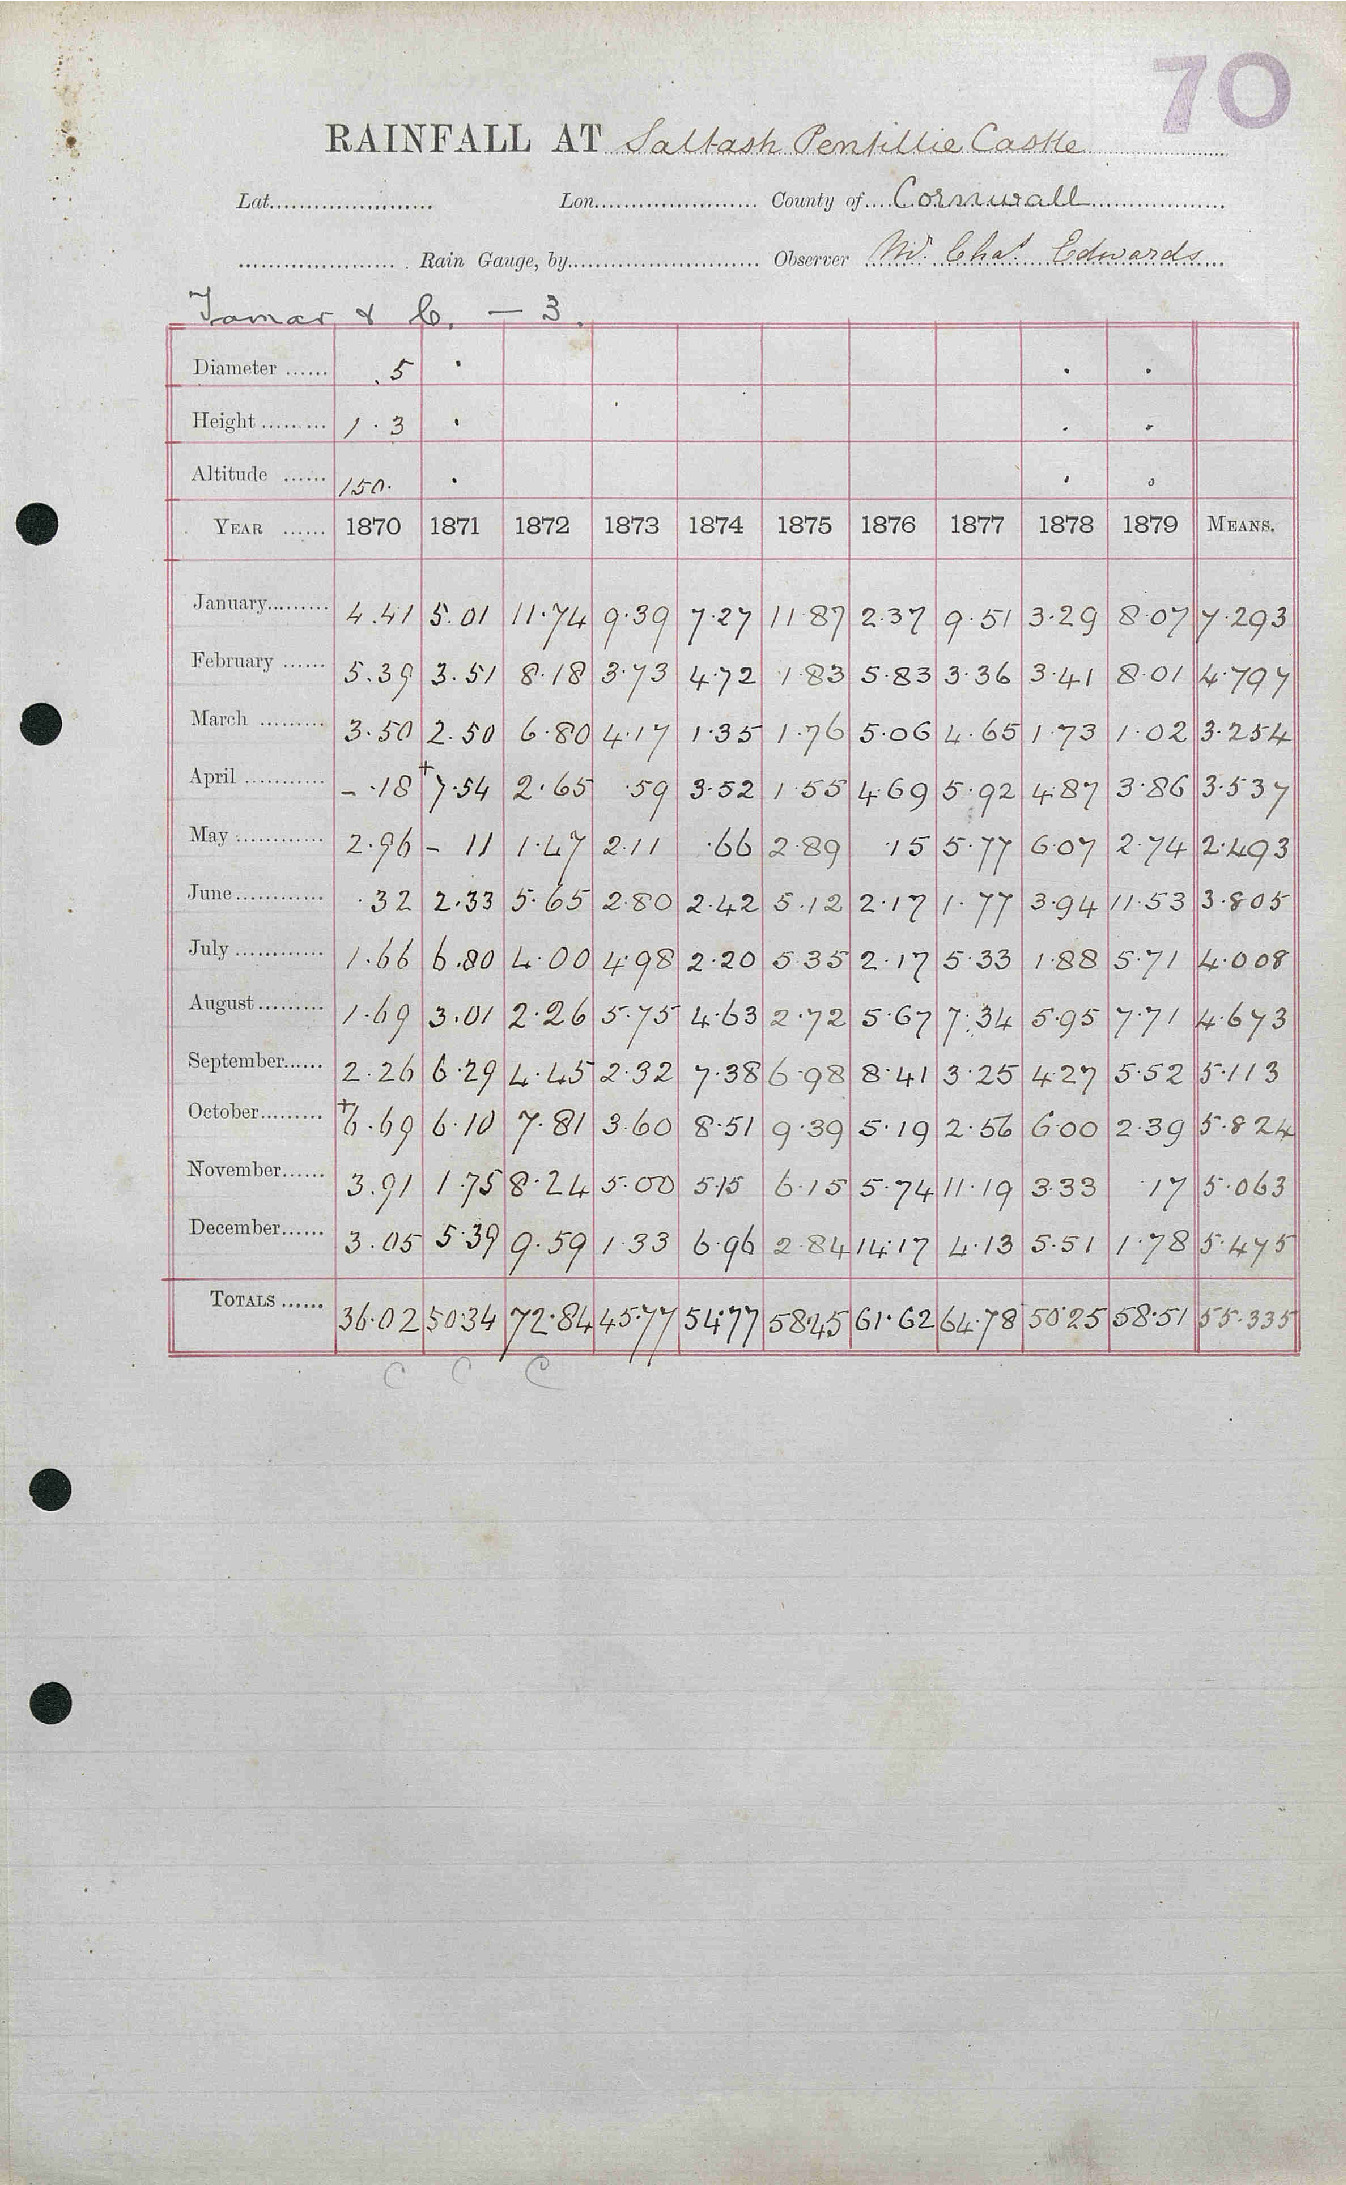 70
RAINFALL AT Saltash Pentillie Castle
Lat. Lon. County of Cornwall
Rain Gauge, by Observer Mr. Chas. Edwards
Tamar & C. — 3.
Diameter ...... .5
Height ......... 1.3
Altitude ...... 150.
YEAR ...... 1870 1871 1872 1873 1874 1875 1876 1877 1878 1879 MEANS.
January......... 4.41 5.01 11.74 9.39 7.27 11.87 2.37 9.51 3.29 8.07 7.293
February ...... 5.39 3.51 8.18 3.73 4.72 1.83 5.83 3.36 3.41 8.01 4.797
March ......... 3.50 2.50 6.80 4.17 1.35 1.76 5.06 4.65 1.73 1.02 3.254
April ........... - .18 +7.54 2.65 .59 3.52 1.55 4.69 5.92 4.87 3.86 3.537
May ............ 2.96 - 11 1.47 2.11 .66 2.89 .15 5.77 6.07 2.74 2.493
June............ .32 2.33 5.65 2.80 2.42 5.12 2.17 1.77 3.94 11.53 3.805
July ............ 1.66 6.80 4.00 4.98 2.20 5.35 2.17 5.33 1.88 5.71 4.008
August ......... 1.69 3.01 2.26 5.75 4.63 2.72 5.67 7.34 5.95 7.71 4.673
September...... 2.26 6.29 4.45 2.32 7.38 6.98 8.41 3.25 4.27 5.52 5.113
October......... +6.69 6.10 7.81 3.60 8.51 9.39 5.19 2.56 6.00 2.39 5.824
November...... 3.91 1.75 8.24 5.00 5.15 6.15 5.74 11.19 3.33 .17 5.063
December...... 3.05 5.39 9.59 1.33 6.96 2.84 14.17 4.13 5.51 1.78 5.475
TOTALS ...... 36.02 50.34 72.84 45.77 54.77 58.45 61.62 64.78 50.25 58.51 55.335
C C C